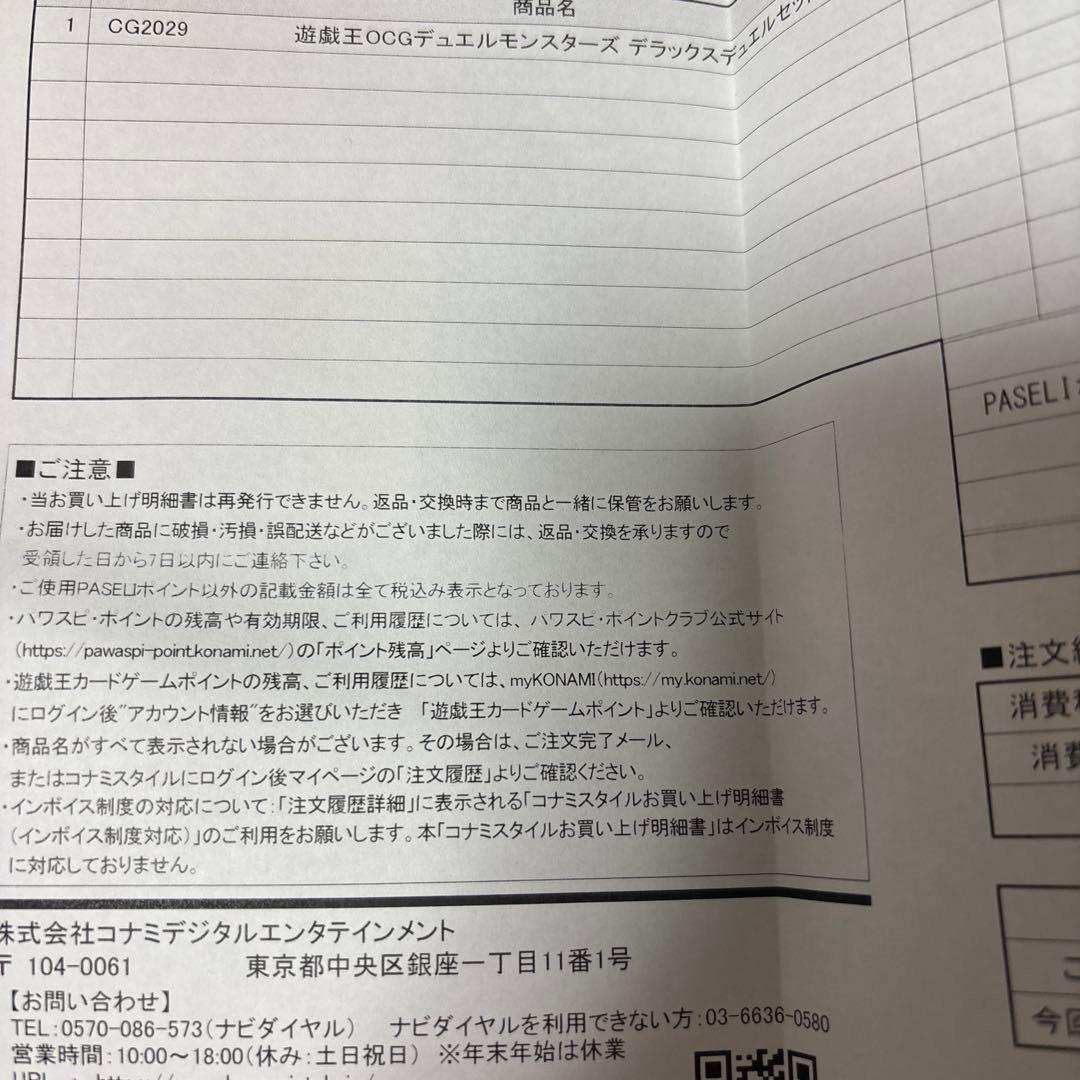 商品名
1 CG2029 遊戯王OCGデュエルモンスターズ デラックスデュエルセット
PASELI
■ご注意■
・当お買い上げ明細書は再発行できません。返品・交換時まで商品と一緒に保管をお願いします。
・お届けした商品に破損・汚損・誤配送などがございました際には、返品・交換を承りますので
受領した日から7日以内にご連絡下さい。
・ご使用PASELIポイント以外の記載金額は全て税込み表示となっております。
・パワスピ・ポイントの残高や有効期限、ご利用履歴については、パワスピ・ポイントクラブ公式サイト
(https://pawaspi-point.konami.net/)の「ポイント残高」ページよりご確認いただけます。
・遊戯王カードゲームポイントの残高、ご利用履歴については、myKONAMI(https://my.konami.net/)
にログイン後"アカウント情報"をお選びいただき 「遊戯王カードゲームポイント」よりご確認いただけます。
・商品名がすべて表示されない場合がございます。その場合は、ご注文完了メール、
またはコナミスタイルにログイン後マイページの「注文履歴」よりご確認ください。
・インボイス制度の対応について:「注文履歴詳細」に表示される「コナミスタイルお買い上げ明細書
(インボイス制度対応)」のご利用をお願いします。本「コナミスタイルお買い上げ明細書」はインボイス制度
に対応しておりません。
■注文
消費
消費
ご
今回
株式会社コナミデジタルエンタテインメント
〒 104-0061 東京都中央区銀座一丁目11番1号
【お問い合わせ】
TEL:0570-086-573(ナビダイヤル) ナビダイヤルを利用できない方:03-6636-0580
営業時間:10:00～18:00(休み:土日祝日) ※年末年始は休業